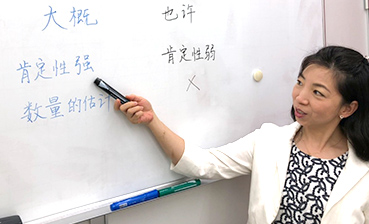 大概
肯定性强
数量的估计
也许
肯定性弱
×